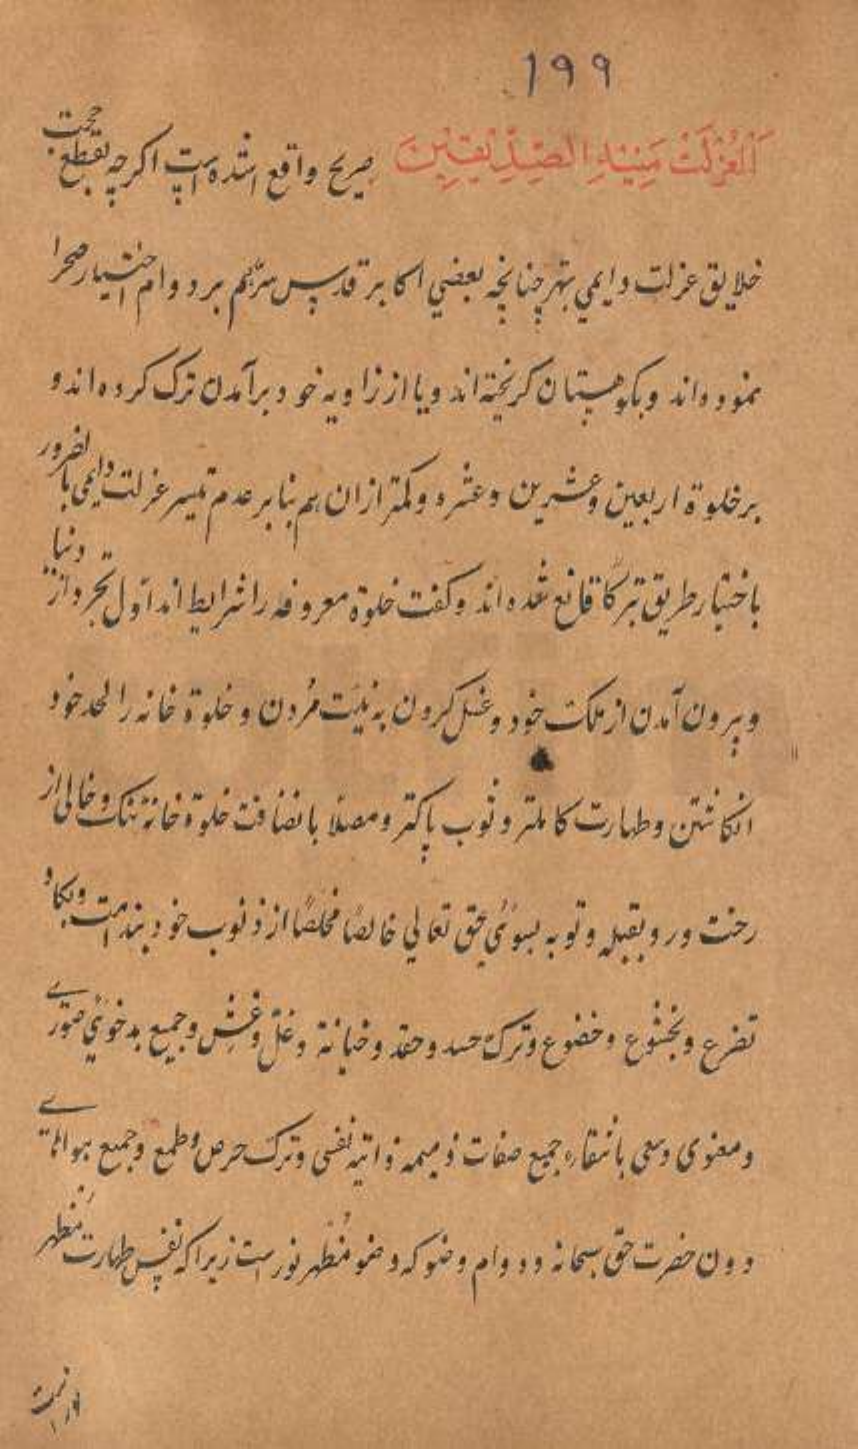 ۱۹۹
اَلْعُزْلَتْ مَنِیَّةِ الصِّدِّیقِیْنَ صریح واقع شده است اکرچه بقطع حجت
خلایق عزلت دایمی بهتر چنانچه بعضی اکابر قدس سرّهم بر دوام اختیار صحرا
نموده اند و بکوهستان کریخته اند و یا از زاویه خود برآمدن ترک کرده اند و
بر خلوة اربعین و عشرین و عشره و کمتر ازان هم بنابر عدم تیسر عزلت دایمی بالضرور
باختیار طریق تبرکًا قانع شده اند و کفت خلوة معروفه را شرایط اند اول تجرد از دنیا
و بیرون آمدن از ملک خود و غسل کردن به نیّت مُردن و خلوة خانه را لحد خود
انکاشتن و طهارت کاملتر و ثوب پاکتر و مصلّا بانضافت خلوة خانه تنک و خالی از
رخت و رو بقبله و توبه بسوئ حق تعالی خالصًا مخلصًا از ذنوب خود بندامت و بکا و
تضرع و بخشوع و خضوع و ترک حسد و حقد و خیانة و غلّ و غِشّ و جمیع بدخوئ صوری
و معنوی و سعی بانتقاء جمیع صفات ذمیمه ذاتیه نفسی و ترک حرص و طمع و جمیع هواهای
دون حضرت حق سبحانه و دوام وضو که وضو مُظهر نورست زیرا که نفس طهارت مُظهر